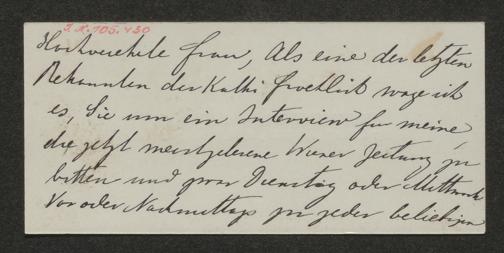 I.N. 105.430
Hochverehrte Frau, Als eine der letzten
Bekannten der Kathi Froehlich wage ich
es, Sie um ein Interview für meine,
die jetzt meistgelesene Wiener Zeitung zu
bitten und zwar Dienstag oder Mittwoch
Vor oder Nachmittags zu jeder beliebigen